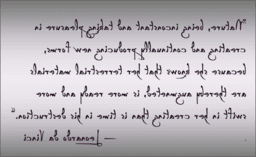 "Nature, being inconstant and taking pleasure in
creating and continually producing new forms,
because she knows that her terrestrial materials
are thereby augmented, is more ready and more
swift in her creating than is time in his destruction."
— Leonardo da Vinci